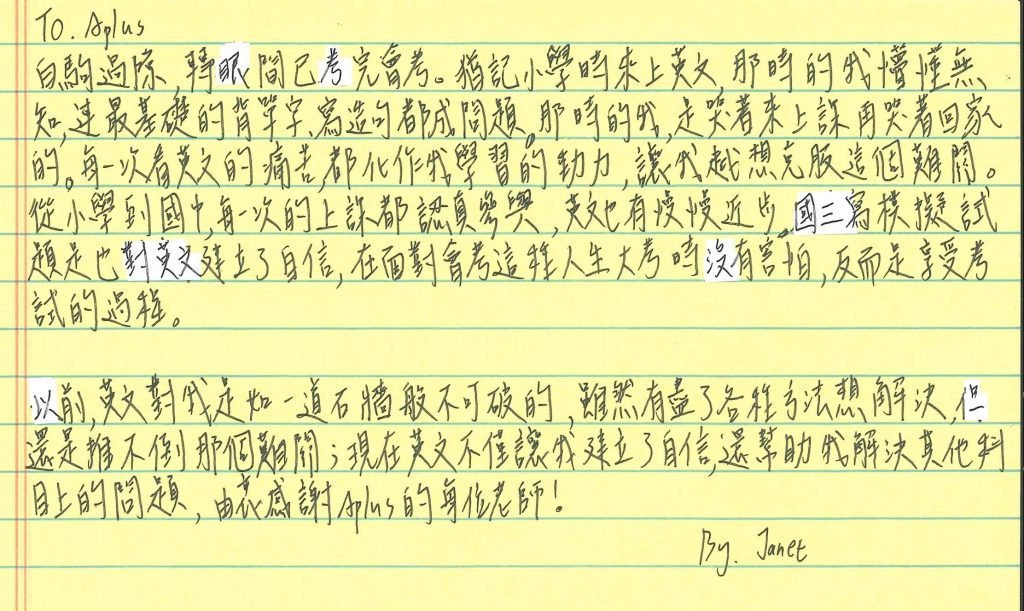 To. Aplus
白駒過隙,轉眼間已考完會考。猶記小學時來上英文,那時的我懵懂無
知,連最基礎的背單字、寫造句都成問題。那時的我,是哭著來上課再哭著回家
的。每一次看英文的痛苦,都化作我學習的動力,讓我越想克服這個難關。
從小學到國中,每一次的上課都認真參與,英文也有慢慢近步。國三寫模擬試
題是也對英文建立了自信,在面對會考這種人生大考時沒有害怕,反而是享受考
試的過程。
以前,英文對我是如一道石牆般不可破的,雖然有盡了各種方法想解決,但
還是推不倒那個難關;現在英文不僅讓我建立了自信,還幫助我解決其他科
目上的問題,由衷感謝Aplus的每位老師!
By. Janet